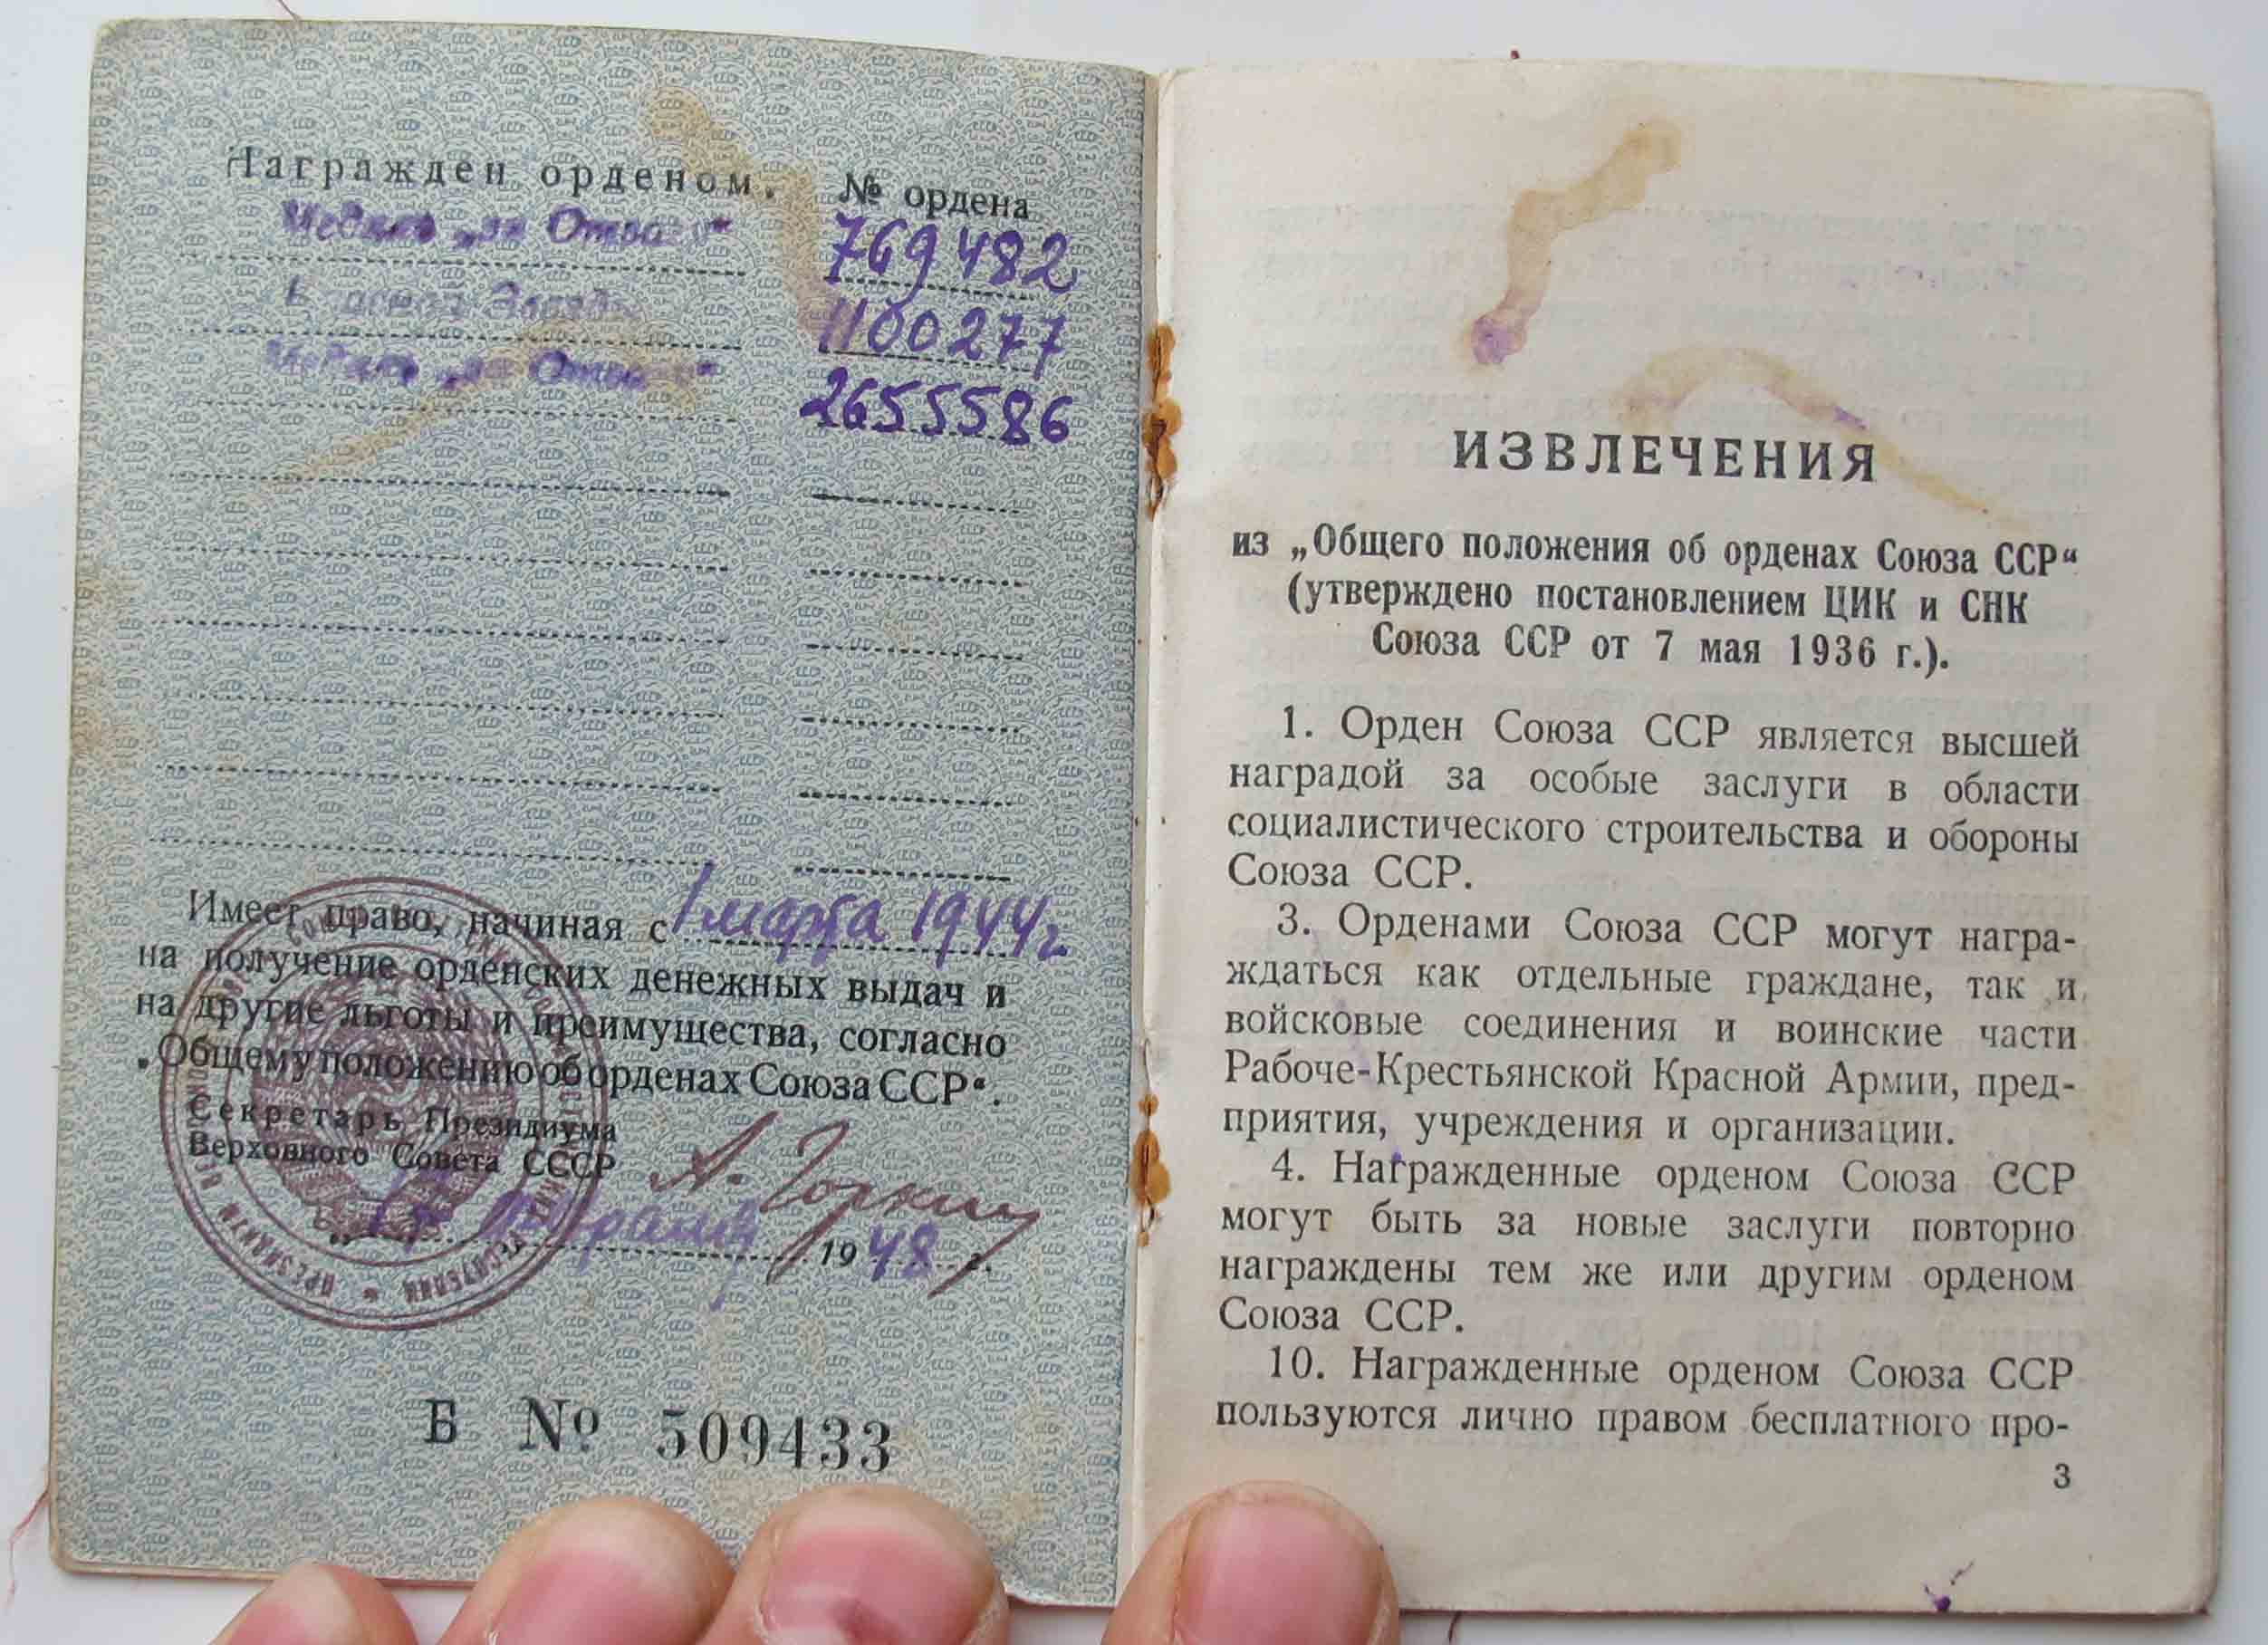 Награжден орденом. № ордена
Медаль „за Отвагу“ 769482
Красная Звезда 1100277
Медаль „за Отвагу“ 2655586
Имеет право, начиная с 1 марта 1944 г.
на получение орденских денежных выдач и
на другие льготы и преимущества, согласно
„Общему положению об орденах Союза ССР“.
Секретарь Президиума
Верховного Совета СССР
А. Горкин
февраля 1948 г.
Б № 509433
ИЗВЛЕЧЕНИЯ
из „Общего положения об орденах Союза ССР“
(утверждено постановлением ЦИК и СНК
Союза ССР от 7 мая 1936 г.).
1. Орден Союза ССР является высшей
наградой за особые заслуги в области
социалистического строительства и обороны
Союза ССР.
3. Орденами Союза ССР могут награ-
ждаться как отдельные граждане, так и
войсковые соединения и воинские части
Рабоче-Крестьянской Красной Армии, пред-
приятия, учреждения и организации.
4. Награжденные орденом Союза ССР
могут быть за новые заслуги повторно
награждены тем же или другим орденом
Союза ССР.
10. Награжденные орденом Союза ССР
пользуются лично правом бесплатного про-
3